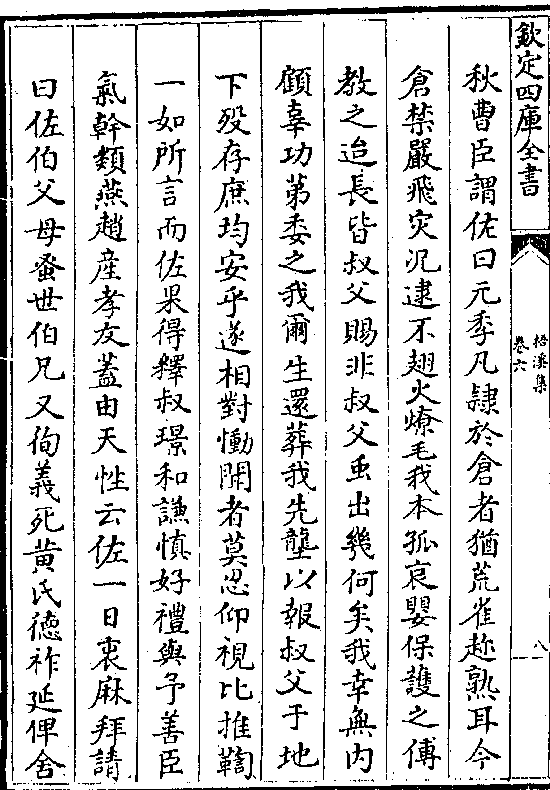 欽定四庫全書
梧溪集
卷六
八
秋曹臣謂佐曰元季凡隷於倉者猶荒雀趂熟耳今
倉禁嚴飛灾汎逮不翅火燎毛我本孤哀嬰保護之傅
教之迨長皆叔父賜非叔父虫出幾何矣我幸無内
顧辜功苐委之我爾生還葬我先壟以報叔父于地
下殁存庶均安乎遂相對慟聞者莫忍仰視比推鞫
一如所言而佐果得釋叔璟和謙慎好禮與予善臣
氣幹類燕趙産孝友蓋由天性云佐一日衰麻拜請
曰佐伯父母蚤世伯兄又徇義死黄氏德祚延俾舍